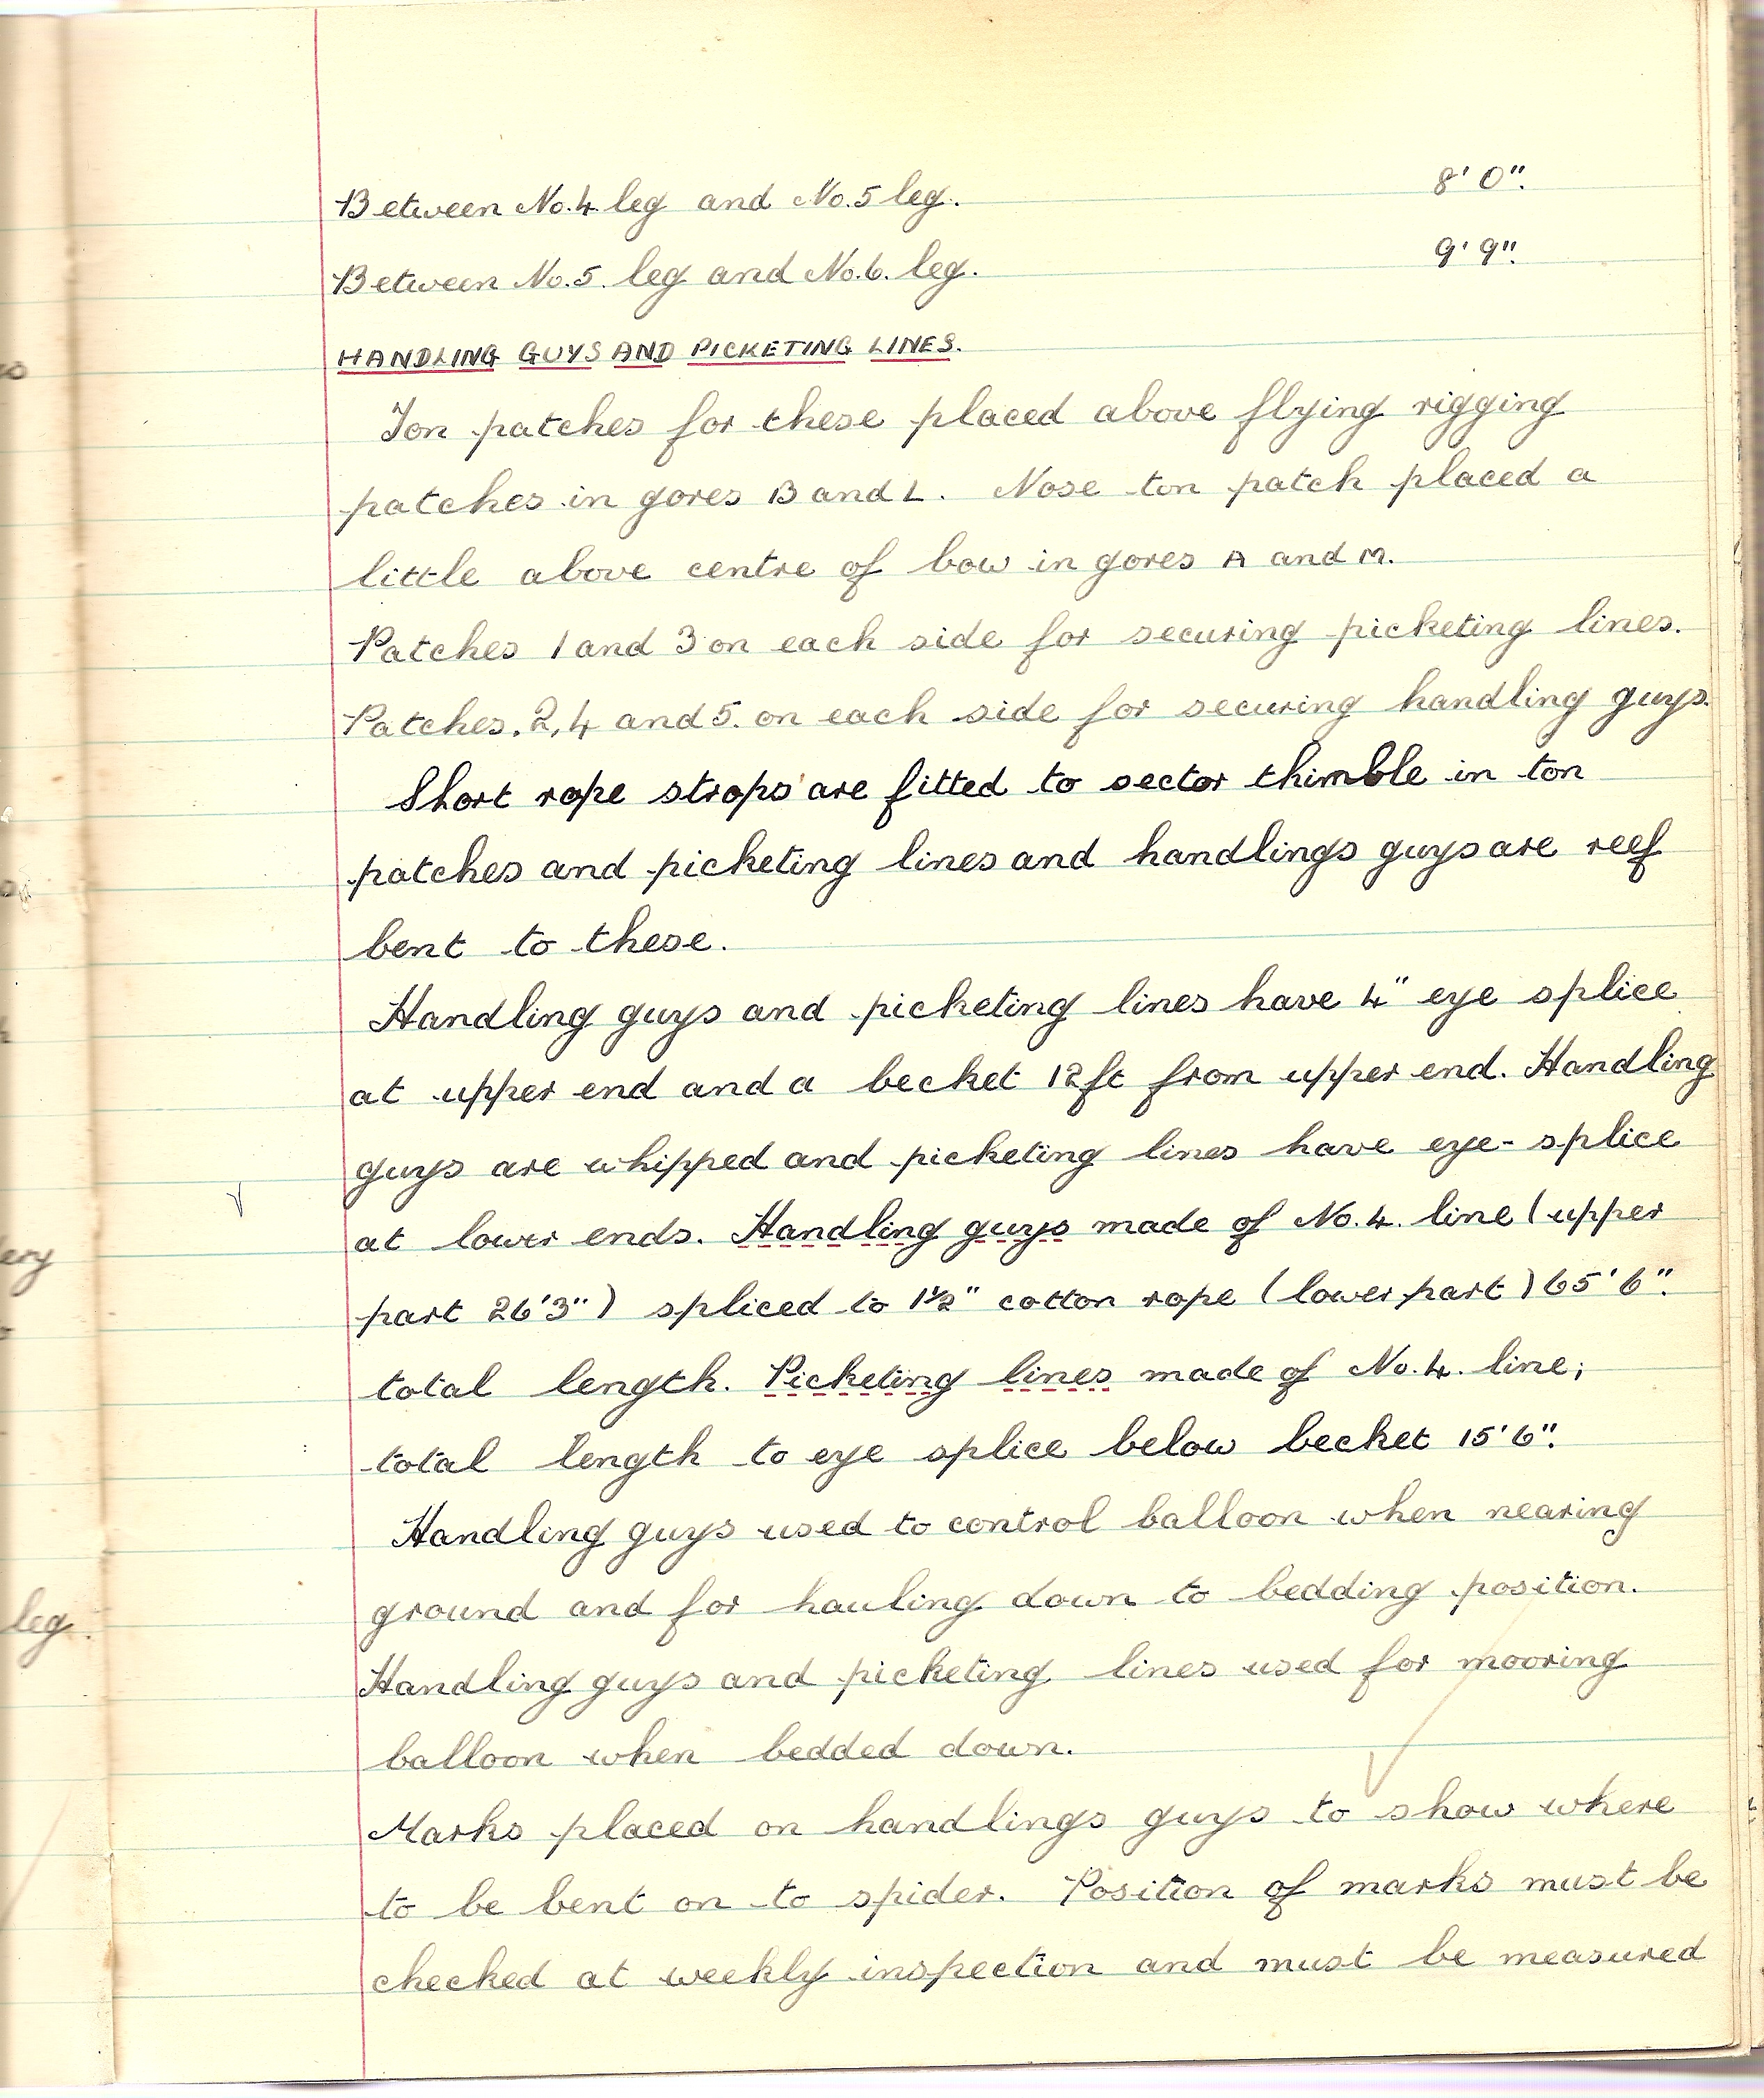 Between No.4 leg and No.5 leg. 8' 0".
Between No.5. leg and No.6. leg. 9' 9".
HANDLING GUYS AND PICKETING LINES.
Ton patches for these placed above flying rigging
patches in gores B and L. Nose ton patch placed a
little above centre of bow in gores A and M.
Patches 1 and 3 on each side for securing picketing lines.
Patches. 2, 4 and 5. on each side for securing handling guys.
Short rope strops are fitted to sector thimble in ton
patches and picketing lines and handlings guys are reef
bent to these.
Handling guys and picketing lines have 4" eye splice
at upper end and a becket 12ft from upper end. Handling
guys are whipped and picketing lines have eye-splice
at lower ends. Handling guys made of No.4. line (upper
part 26'3") spliced to 1½" cotton rope (lower part) 65'6".
total length. Picketing lines made of No.4. line;
total length to eye splice below becket 15'6".
Handling guys used to control balloon when nearing
ground and for hauling down to bedding position.
leg.
Handling guys and picketing lines used for mooring
balloon when bedded down.
Marks placed on handlings guys to show where
to be bent on to spider. Position of marks must be
checked at weekly inspection and must be measured